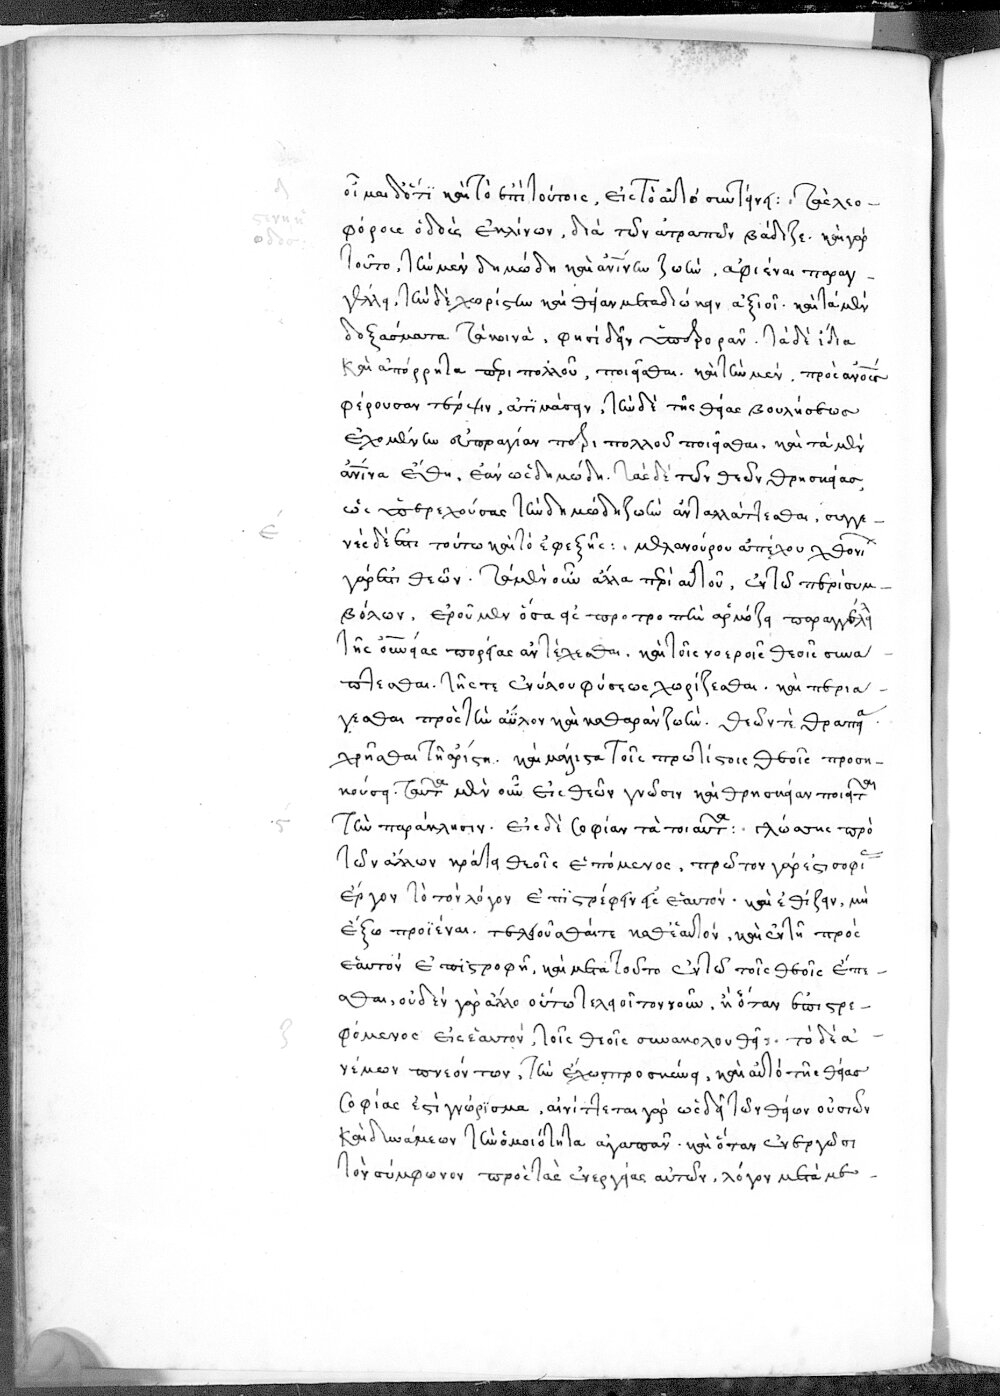 οἶμαι δὲ ὅτι καὶ τὸ ἐπὶ τούτοις, εἰς τὸ αὐτὸ συντείνει: τὰς λεω-
φόρους ὁδοὺς ἐκκλίνων, διὰ τῶν ἀτραπῶν βάδιζε. καὶ γὰρ
τοῦτο, τὴν μὲν δημώδη καὶ ἀνίνην ζωὴν, ἀφιέναι παραγ-
γέλλει, τὴν δὲ χωριστὴν καὶ θείαν μεταδιώκειν ἀξιοῖ. καὶ τὰ μὲν
δοξάσματα τὰ κοινὰ, φησὶ δεῖν ὑπερορᾶν. τὰ δὲ ἴδια
καὶ ἀπόρρητα περὶ πολλοῦ, ποιεῖσθαι. καὶ τὴν μὲν, πρὸς ἀνους
φέρουσαν τέρψιν, ἀτιμάζειν, τὴν δὲ τῆς θείας βουλήσεως
ἐχομένην εὐπραγίαν περὶ πολλοῦ ποιεῖσθαι. καὶ τὰ μὲν
ἀνινα ἔθη, ἐᾶν ὡς δημώδη. τὰς δὲ τῶν θεῶν θρησκείας,
ὡς ὑπερεχούσας τὴν δημώδη ζωὴν ἀνταλλάττεσθαι. συγγε-
ε΄ νὲς δέ ἐστι τούτω καὶ τὸ ἐφεξῆς: μελανούρου ἀπέχου χθονί
γάρ ἐστι θεῶν. τὰ μὲν οὖν ἄλλα περὶ αὐτοῦ, ἐν τῶ περὶ συμ-
βόλων, ἐροῦμεν ὅσα εἰς προτροπὴν ἁρμόζει παραγγέλλει
τῆς οὐνίας πορείας ἀντέχεσθαι. καὶ τοῖς νοεροῖς θεοῖς συνά-
πτεσθαι. τῆς τε ἐνύλου φύσεως χωρίζεσθαι. καὶ περιά-
γεσθαι πρὸς τὴν ἄϋλον καὶ καθαρὰν ζωήν. θεῶν τὲ θεραπεία
χρῆσθαι τῆ ἀρίστη. καὶ μάλιστα τοῖς πρωτίστοις θεοῖς προση-
κούση. ταῦτα μὲν οὖν εἰς θεῶν γνῶσιν καὶ θρησκείαν ποιεῖται
ϛ΄ τὴν παράκλησιν. εἰς δὲ σοφίαν τὰ τοιαῦτα: γλώσσης πρὸ
τῶν ἄλλων κράτει θεοῖς ἑπόμενος. πρῶτον γάρ ἐστι σοφίας
ἔργον τὸ τὸν λόγον ἐπιστρέφειν εἰς ἑαυτόν. καὶ ἐθίζειν, μὴ
ἔξω προϊέναι. τελεοῦσθαί τε καθ' ἑαυτόν, καὶ ἐν τῆ πρὸς
ἑαυτόν ἐπιστροφῆ, καὶ μετὰ τοῦτο ἐν τῶ τοῖς θεοῖς ἕπε-
σθαι. οὐδὲν γὰρ ἄλλο οὕτω τελειοῖ τὸν νοῦν, ἢ ὅταν ἐπιστρε-
ζ φόμενος εἰς ἑαυτόν, τοῖς θεοῖς συνακολουθῆ. τὸ δὲ ἀ-
νέμων πνεόντων, τὴν ἠχὼ προσκύνει, καὶ αὐτὸ τῆς θείας
σοφίας ἐστὶ γνώρισμα. αἰνίττεται γὰρ ὡς δεῖ τῶν θείων οὐσιῶν
καὶ δυνάμεων τὴν ὁμοιότητα ἀγαπᾶν. καὶ ὅταν ἐνεργῶσι
τὸν σύμφωνον πρὸς τὰς ἐνεργείας αὐτῶν, λόγον μετὰ με-